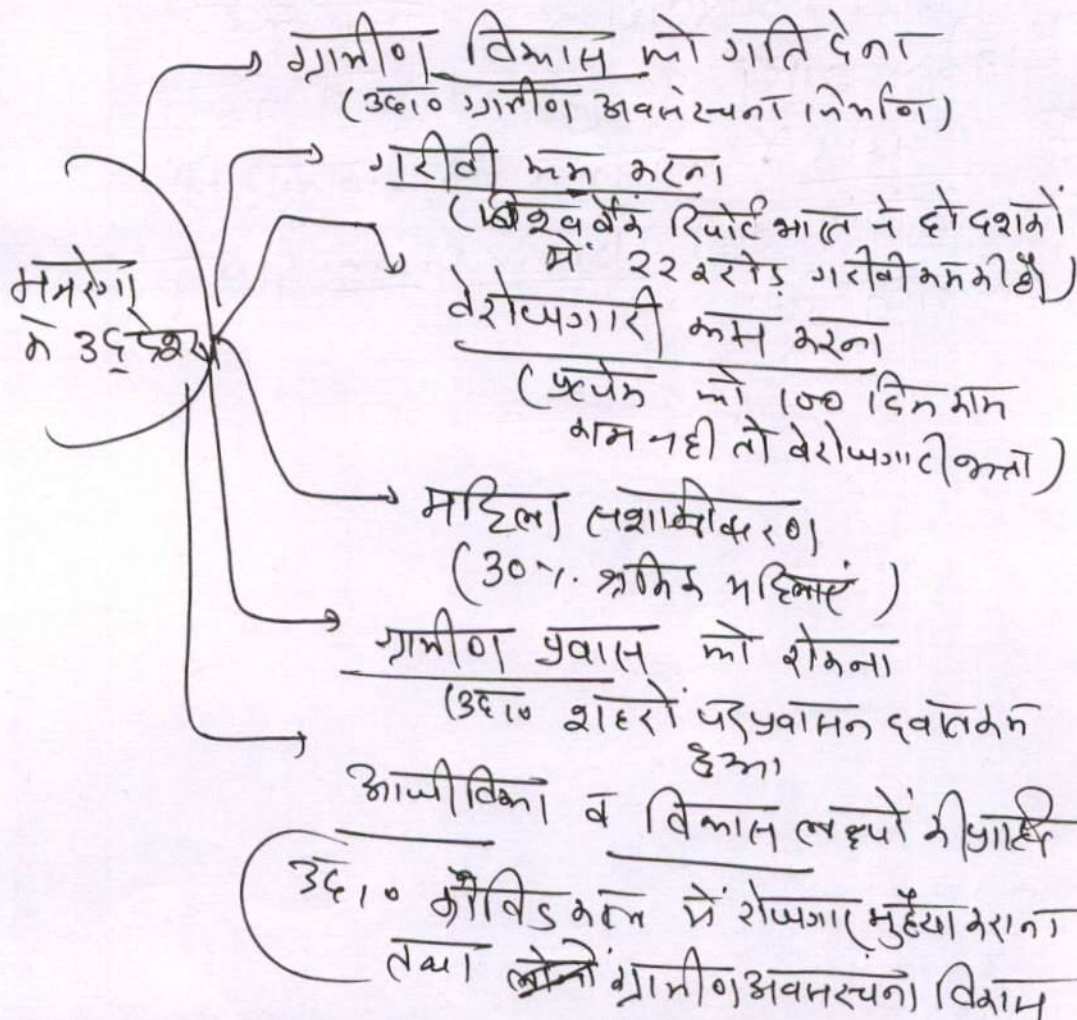 ग्रामीण विकास को गति देना
(उदा० ग्रामीण अवसंरचना निर्माण)
गरीबी कम करना
(विश्व बैंक रिपोर्ट भारत ने दो दशकों
में 22 करोड़ गरीबी कम की है)
मनरेगा
के उद्देश्य
बेरोजगारी कम करना
(प्रत्येक को 100 दिन काम
काम नही तो बेरोजगारी भत्ता)
महिला सशक्तीकरण
(30%. श्रमिक महिलाएं)
ग्रामीण प्रवास को रोकना
(उदा० शहरों पर प्रवासन दवाब कम
हुआ
आजीविका व विकास लक्ष्यों की प्राप्ति
उदा० कोविड काल में रोजगार मुहैया कराना
तथा ग्रामीण अवसंरचना विकास